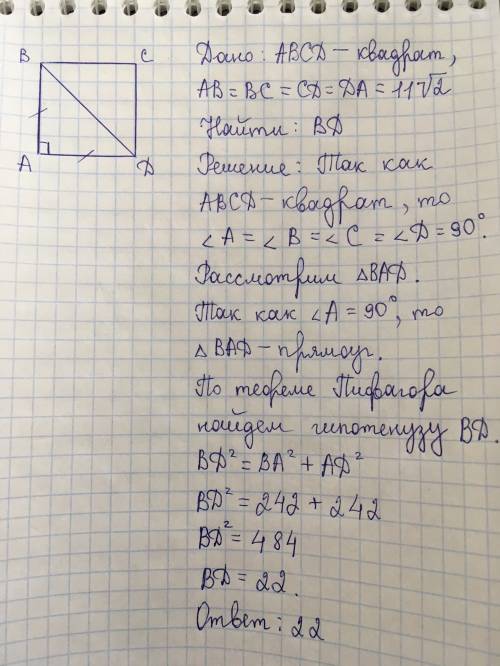 B
C
A
D
Дано: ABCD - квадрат,
AB = BC = CD = DA = 11√2
Найти: BD
Решение: Так как
ABCD - квадрат, то
∠A = ∠B = ∠C = ∠D = 90°.
Рассмотрим △BAD.
Так как ∠A = 90°, то
△BAD - прямоуг.
По теореме Пифагора
найдем гипотенузу BD.
BD² = BA² + AD²
BD² = 242 + 242
BD² = 484
BD = 22.
Ответ: 22